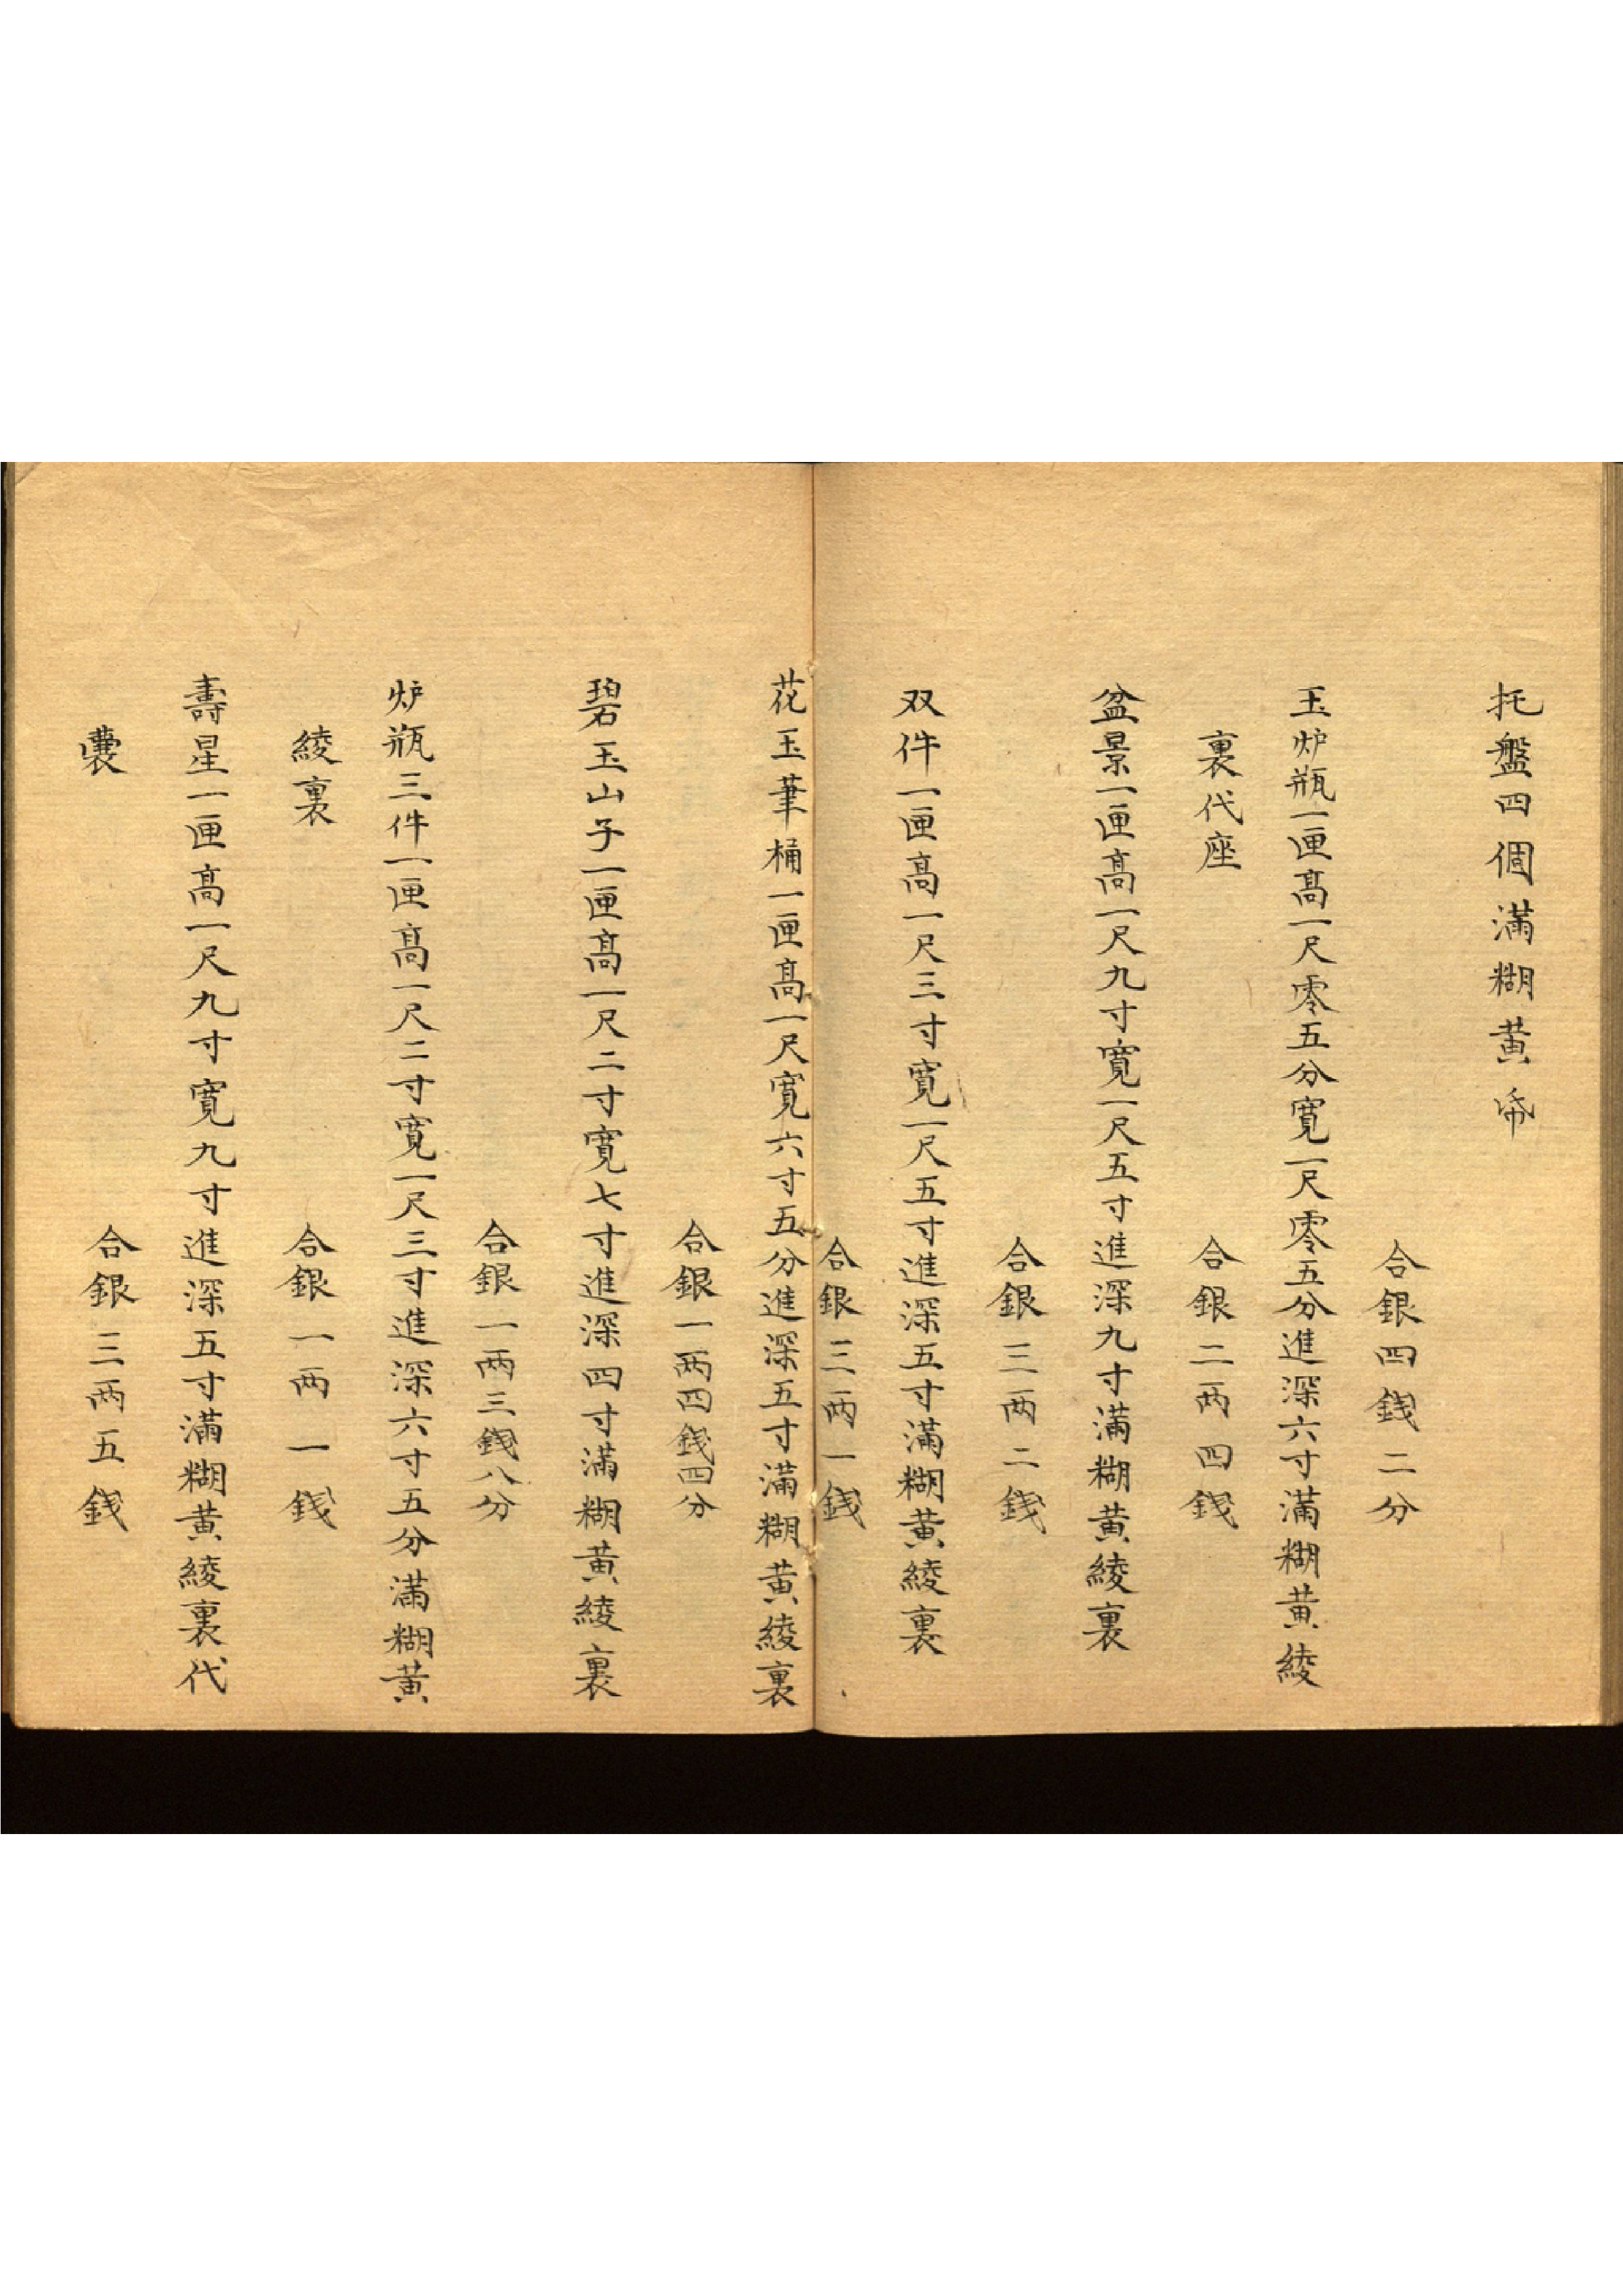 托盤四個滿糊黃帋
合銀四錢二分
玉炉瓶一匣高一尺零五分寬一尺零五分進深六寸滿糊黃綾
裏代座
合銀二两四錢
盆景一匣高一尺九寸寬一尺五寸進深九寸滿糊黃綾裏
合銀三两二錢
双件一匣高一尺三寸寬一尺五寸進深五寸滿糊黃綾裏
合銀三两一錢
花玉筆桶一匣高一尺寬六寸五分進深五寸滿糊黃綾裏
合銀一两四錢四分
碧玉山子一匣高一尺二寸寬七寸進深四寸滿糊黃綾裏
合銀一两三錢八分
炉瓶三件一匣高一尺二寸寬一尺三寸進深六寸五分滿糊黃
綾裏
合銀一两一錢
壽星一匣高一尺九寸寬九寸進深五寸滿糊黃綾裏代
合銀三两五錢